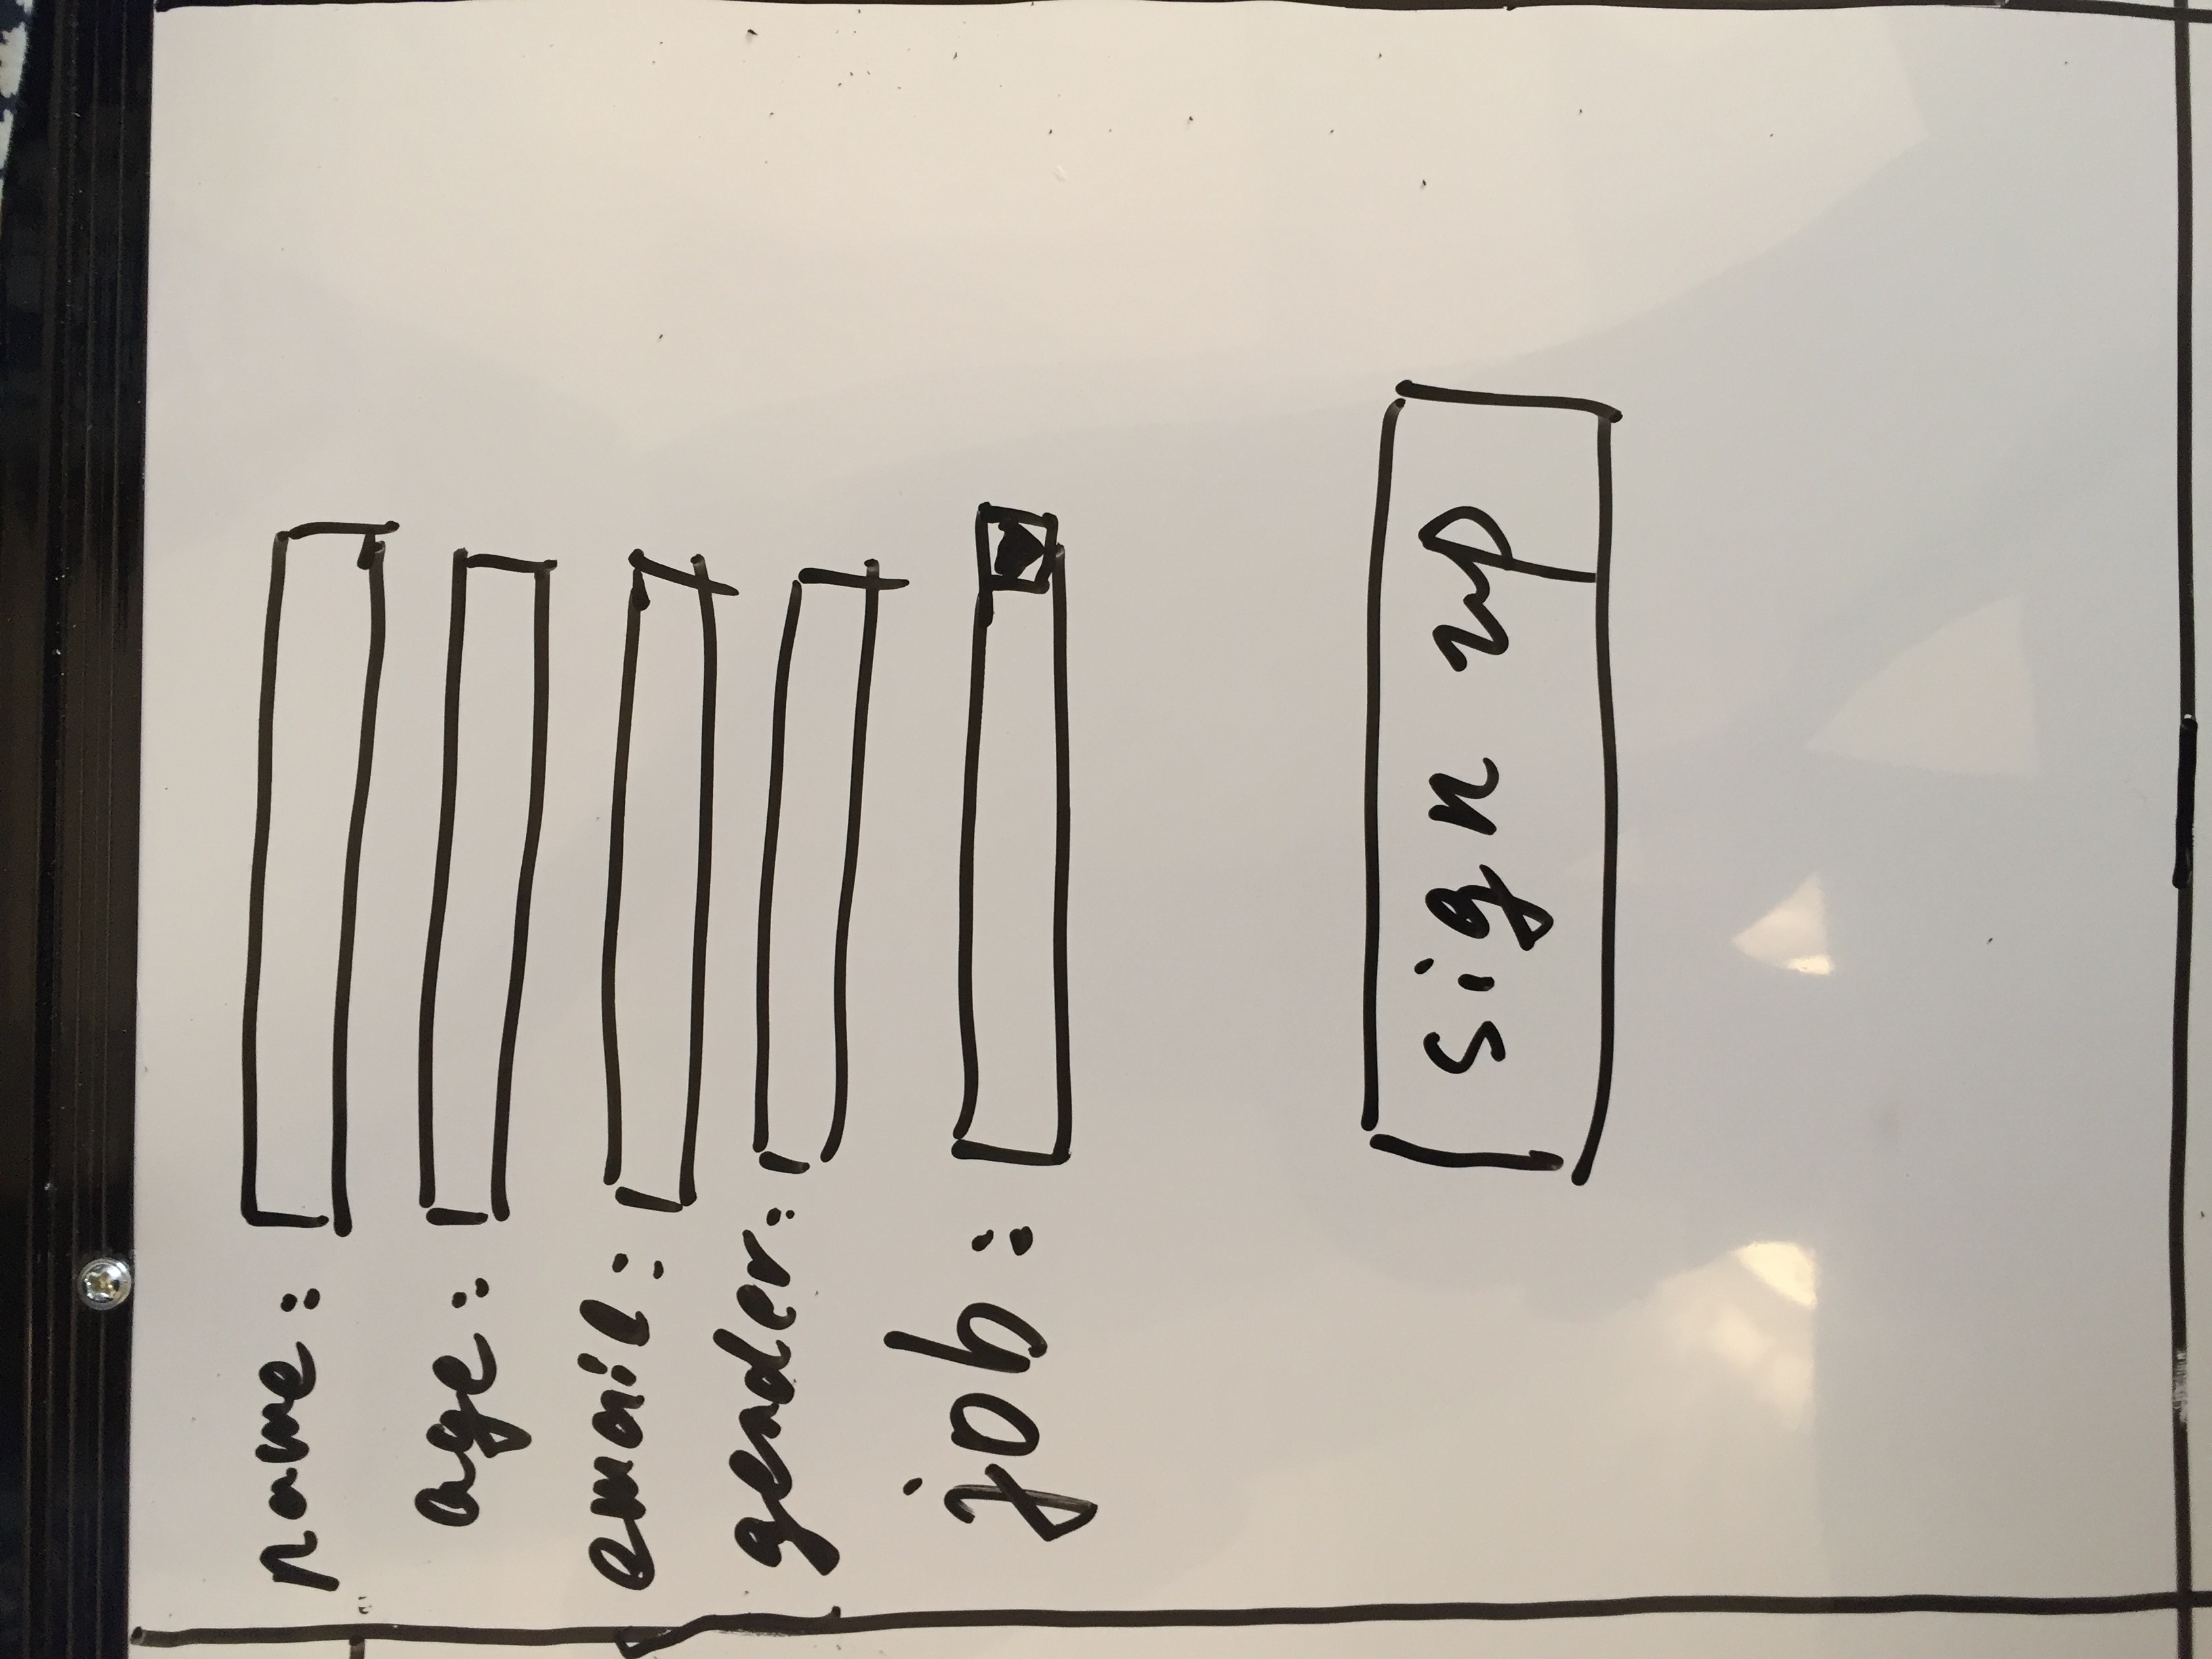 name:
age:
email:
gender:
job:
sign up